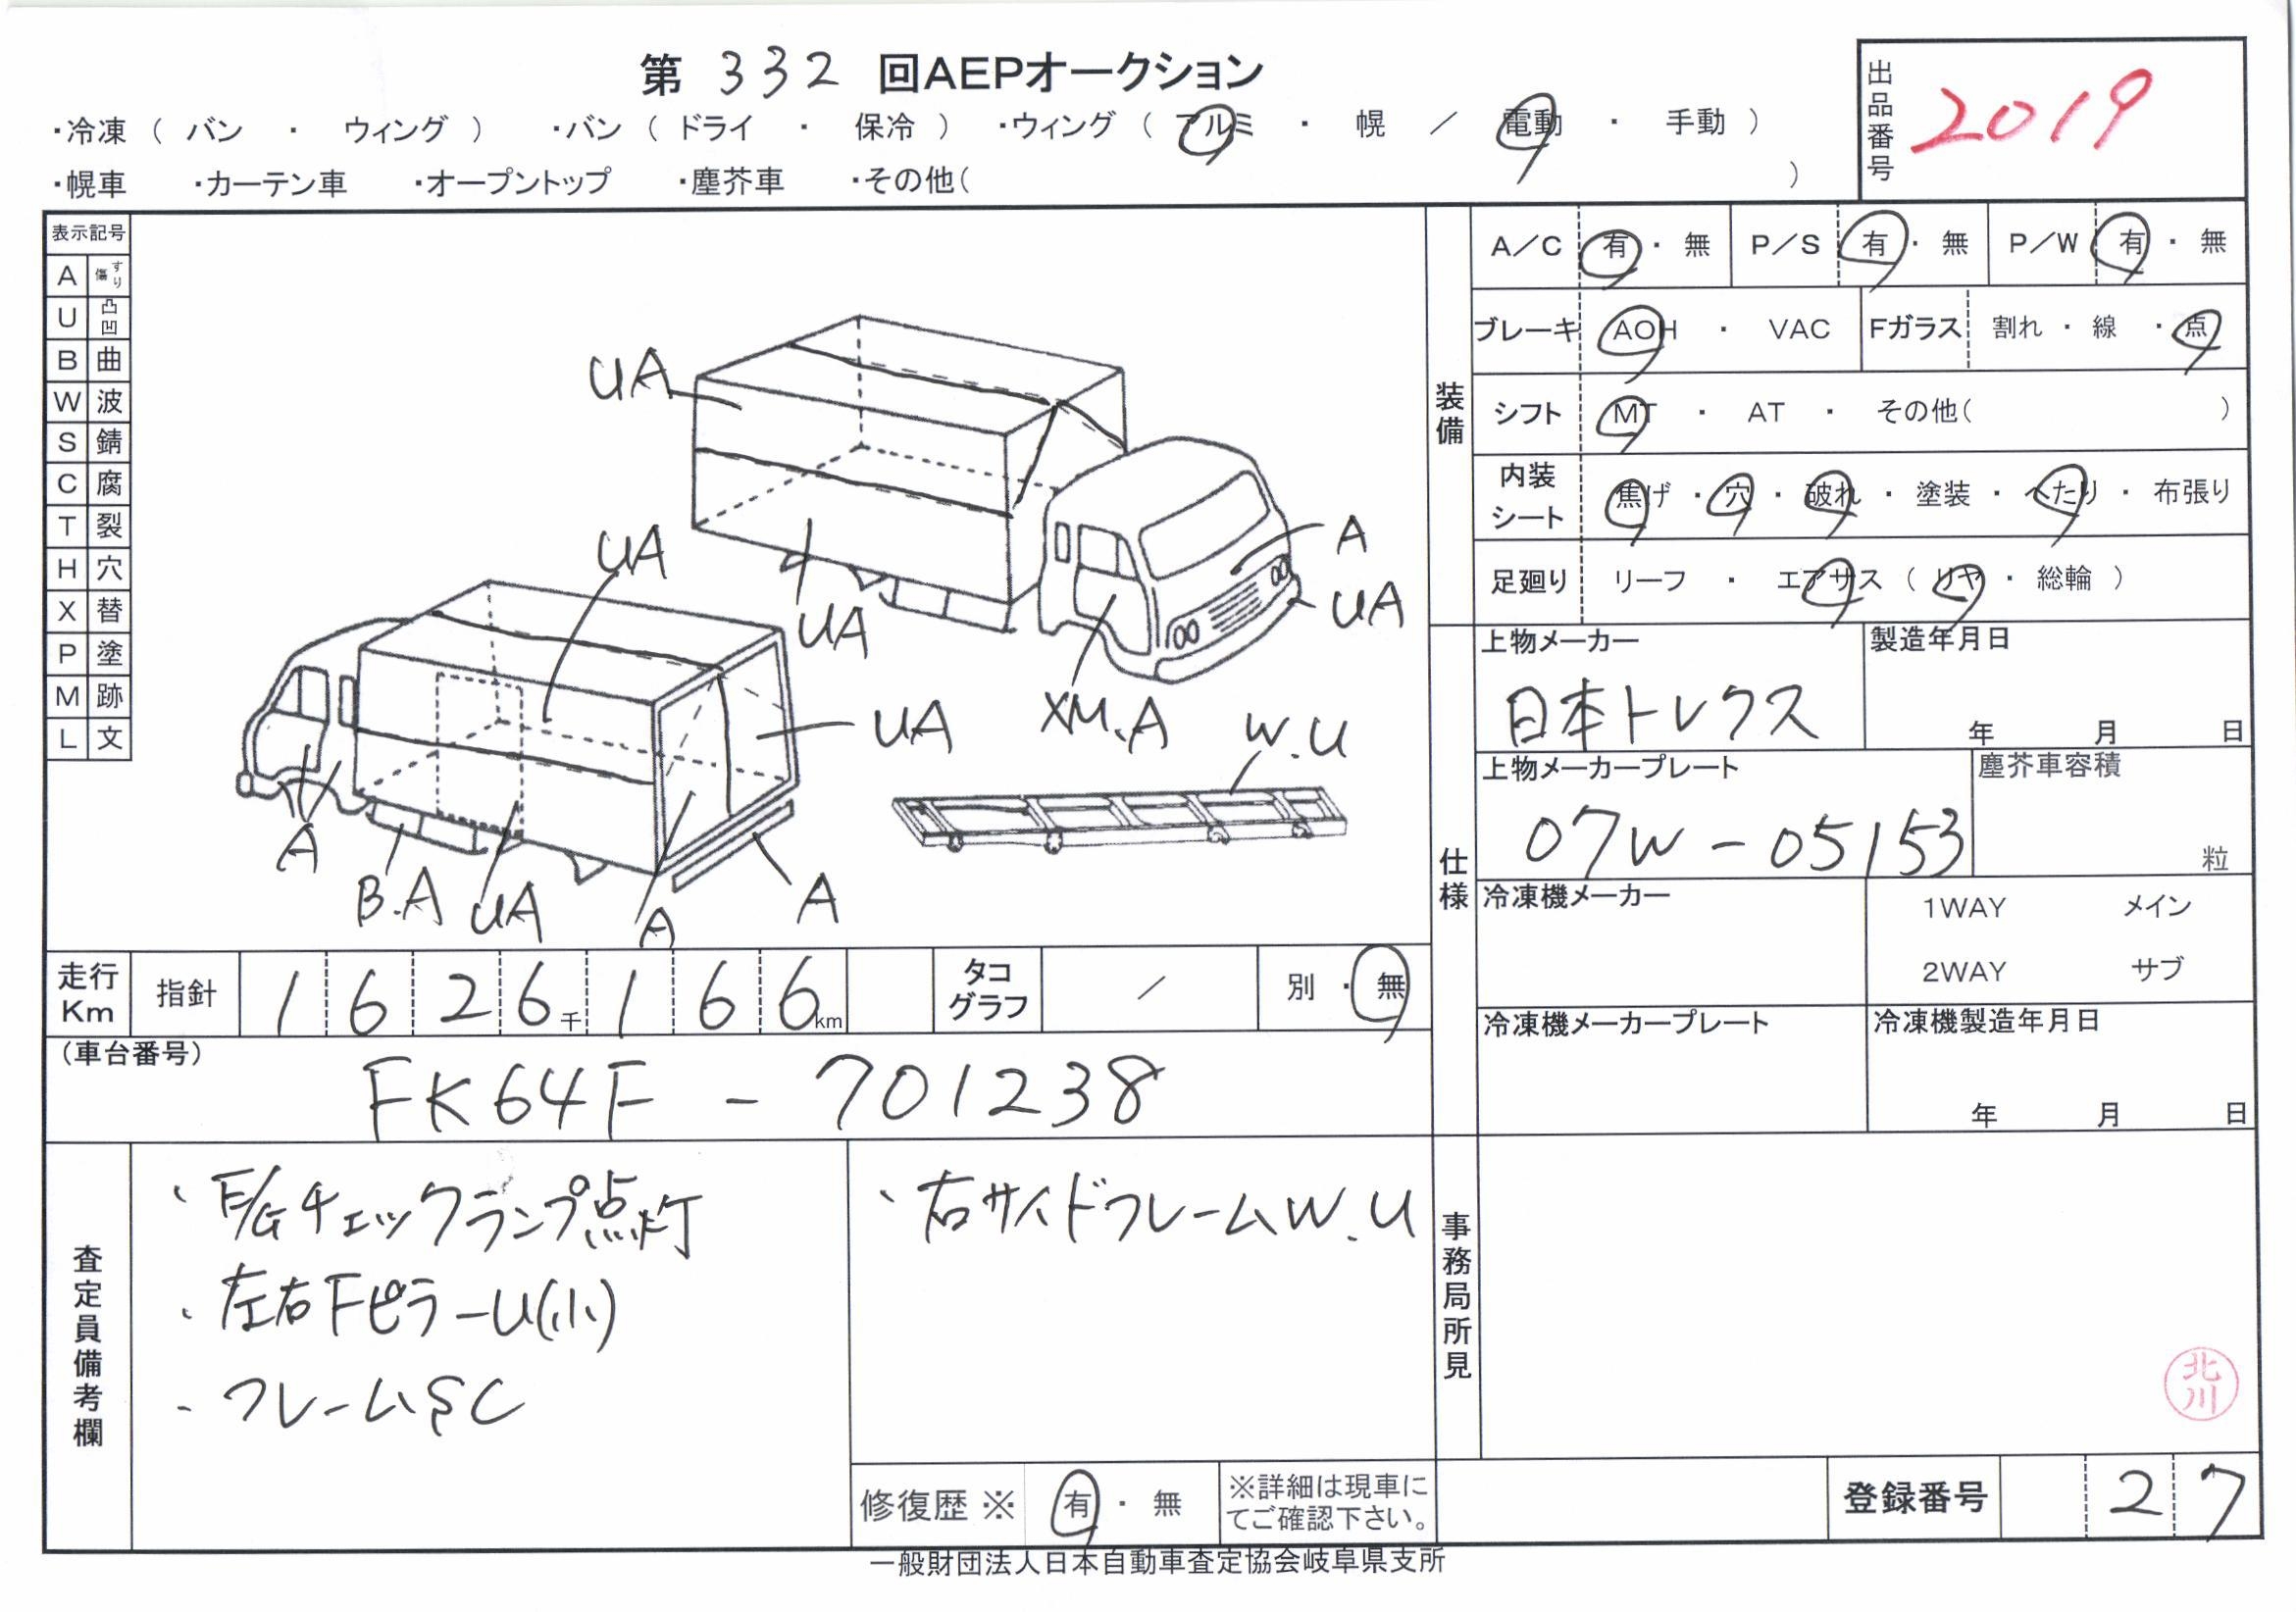 第 332 回AEPオークション
・冷凍（ バン ・ ウィング ） ・バン（ ドライ ・ 保冷 ） ・ウィング（ アルミ ・ 幌 ／ 電動 ・ 手動 ）
・幌車 ・カーテン車 ・オープントップ ・塵芥車 ・その他（ ）
出品番号 2019
表示記号
A すり傷
U 凸凹
B 曲
W 波
S 錆
C 腐
T 裂
H 穴
X 替
P 塗
M 跡
L 文
UA
UA
UA
A
UA
XM.A
UA
W.U
A
B.A
UA
A
A
装備
A／C 有・無 P／S 有・無 P／W 有・無
ブレーキ AOH ・ VAC Fガラス 割れ・線・点
シフト MT ・ AT ・ その他（ ）
内装シート 焦げ・穴・破れ・塗装・へたり・布張り
足廻り リーフ ・ エアサス（ リヤ ・ 総輪 ）
仕様
上物メーカー 日本トレクス
製造年月日 年 月 日
上物メーカープレート 07W-05153
塵芥車容積 粒
冷凍機メーカー
1WAY メイン
2WAY サブ
冷凍機メーカープレート
冷凍機製造年月日 年 月 日
走行Km 指針 1626千166km
タコグラフ ／ 別・無
（車台番号）
FK64F - 701238
査定員備考欄
・E/Gチェックランプ点灯
・左右FピラーU(小)
・フレームSC
・右サイドフレームW.U
修復歴※ 有・無 ※詳細は現車にてご確認下さい。
事務局所見
北川
登録番号 27
一般財団法人日本自動車査定協会岐阜県支所